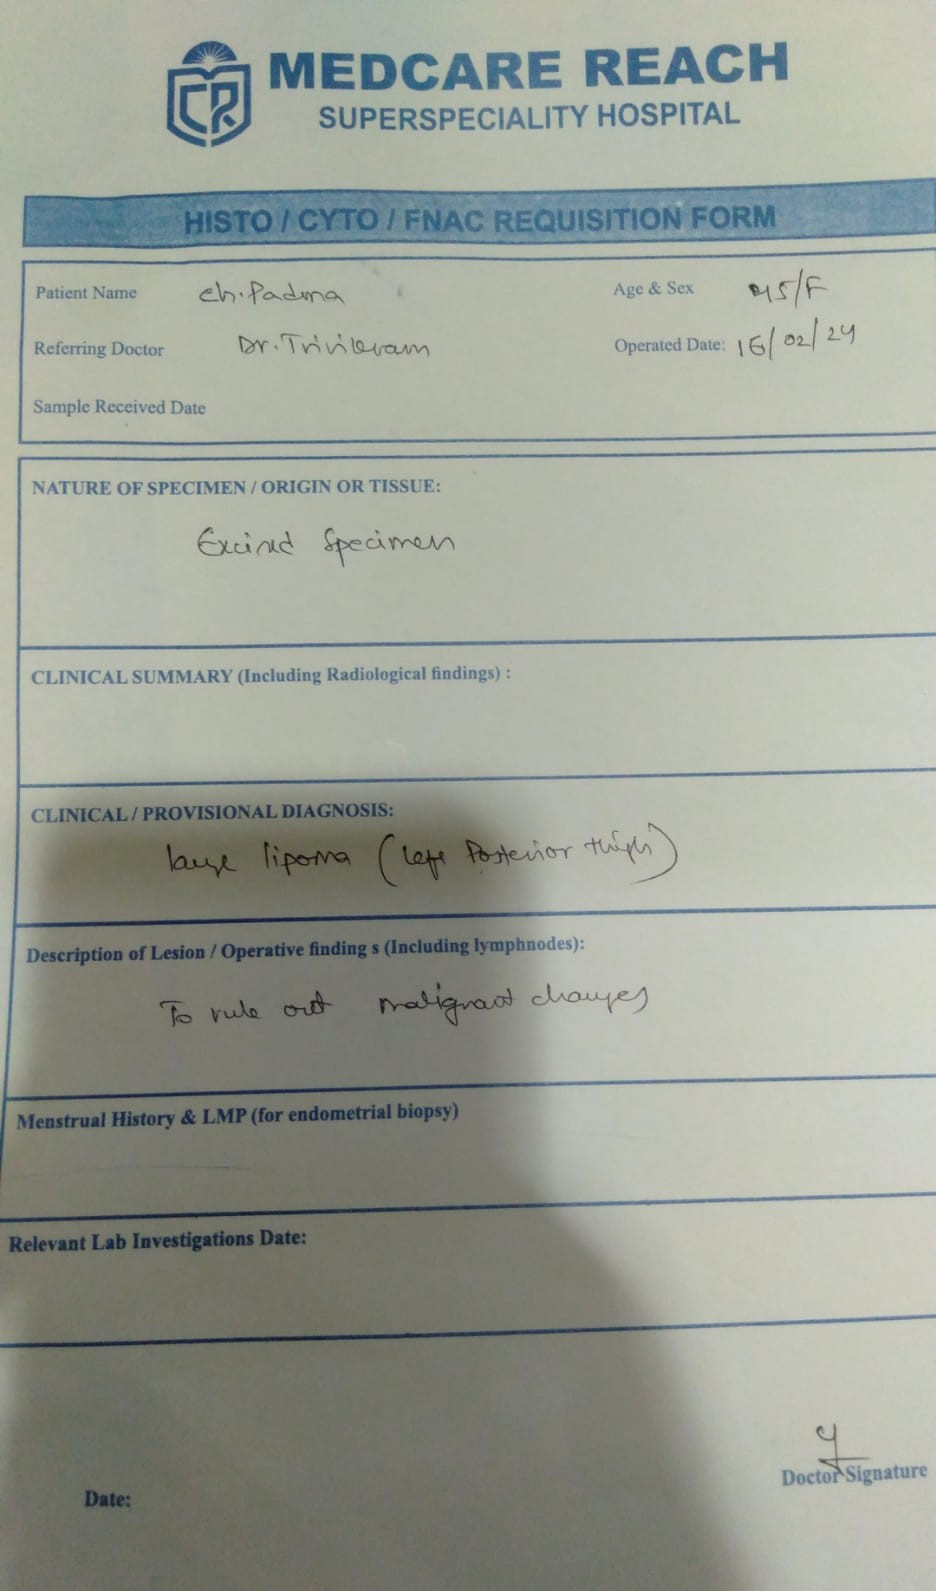 MEDCARE REACH
SUPERSPECIALITY HOSPITAL
HISTO / CYTO / FNAC REQUISITION FORM
Patient Name ch. Padma Age & Sex 45/F
Referring Doctor Dr. Trivikram Operated Date: 16/02/24
Sample Received Date
NATURE OF SPECIMEN / ORIGIN OR TISSUE:
Excised Specimen
CLINICAL SUMMARY (Including Radiological findings) :
CLINICAL / PROVISIONAL DIAGNOSIS:
large lipoma (left Posterior thigh)
Description of Lesion / Operative finding s (Including lymphnodes):
To rule out malignant changes
Menstrual History & LMP (for endometrial biopsy)
Relevant Lab Investigations Date:
Doctor Signature
Date: